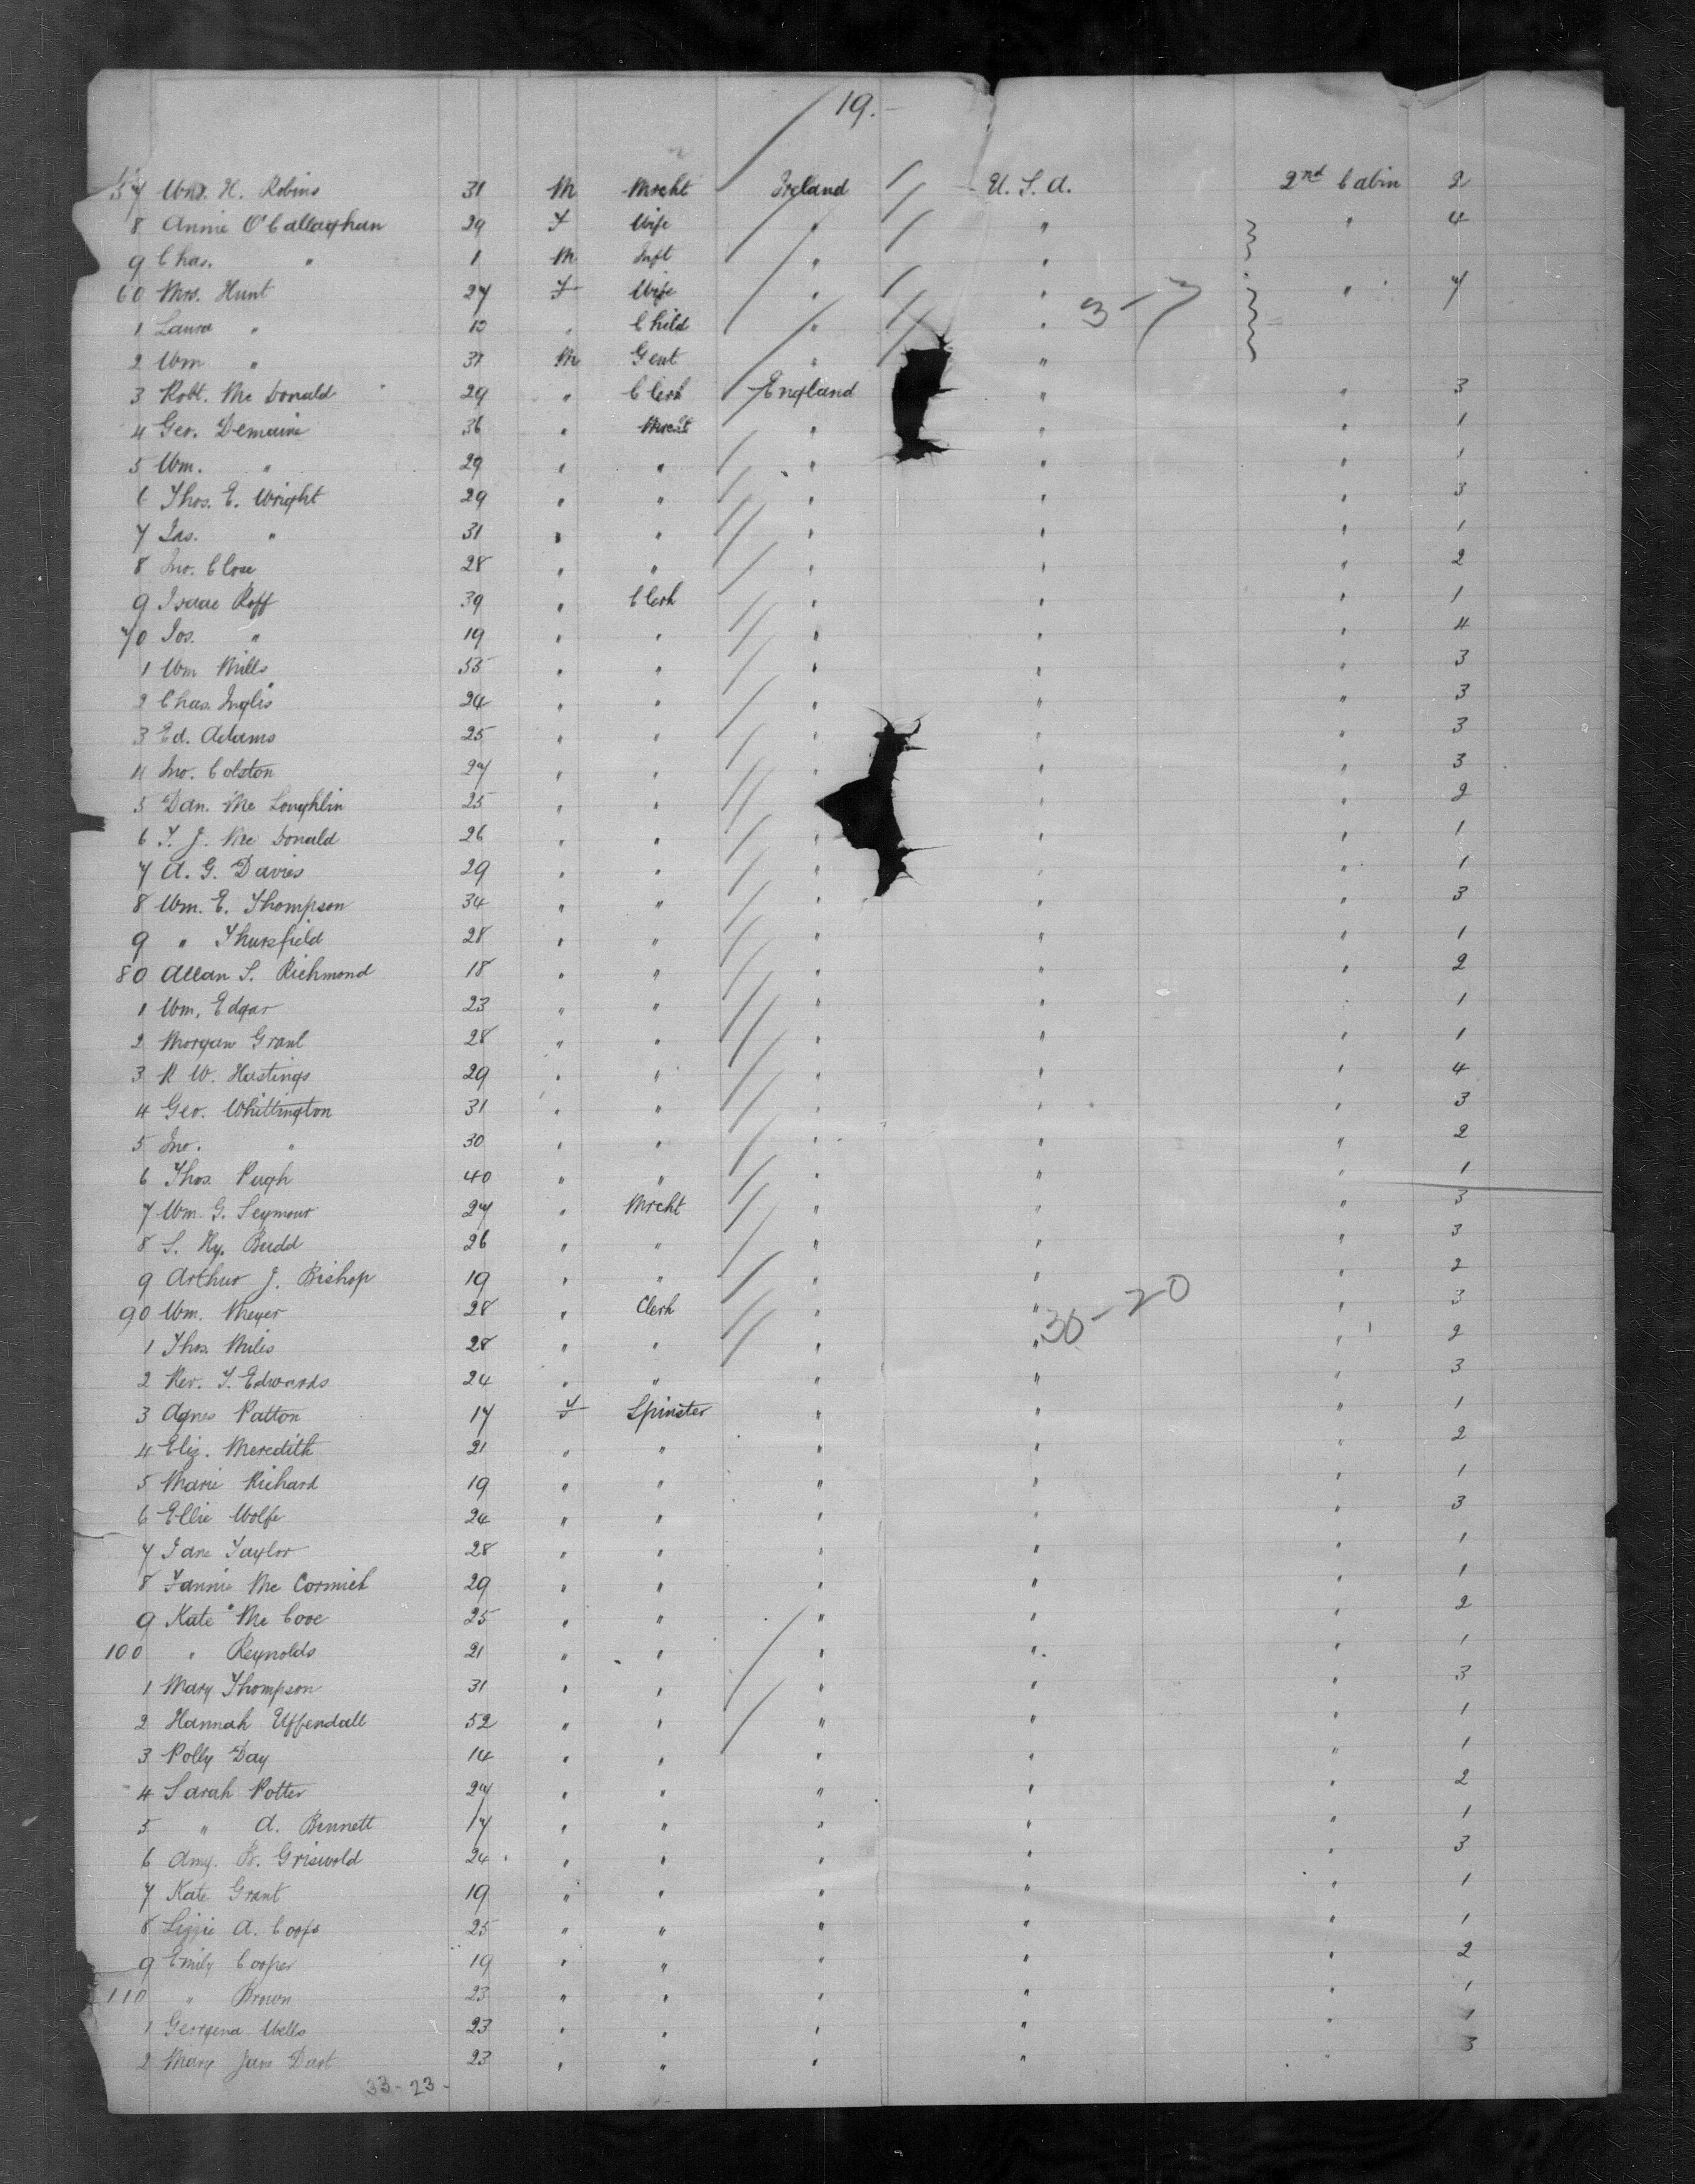 19.-
57 Wm. H. Robins 31 M Mrcht Ireland U.S.A. 2nd Cabin 2
8 Annie O'Callaghan 29 F Wife " " " 4
9 Chas. " 1 M Inft " "
60 Mrs. Hunt 27 F Wife " " " 7
3-7
1 Laura " 10 " Child " "
2 Wm " 31 M Gent " "
3 Robt. Mc Donald 29 " Clerk England " " 3
4 Geo. Demaine 36 " Mrcht " " " 1
5 Wm. " 29 " " " " " 1
6 Thos. E. Wright 29 " " " " " 3
7 Jas. " 31 " " " " " 1
8 Jno. Close 28 " " " " " 2
9 Isaac Roff 39 " Clerk " " " 1
70 Jos. " 19 " " " " " 4
1 Wm Mills 53 " " " " " 3
2 Chas. Inglis 24 " " " " " 3
3 Ed. Adams 25 " " " " " 3
4 Jno. Colston 27 " " " " " 3
5 Dan. Mc Loughlin 25 " " " " " 2
6 T. J. Mc Donald 26 " " " " " 1
7 A. G. Davies 29 " " " " " 1
8 Wm. E. Thompson 34 " " " " " 3
9 " Thursfield 28 " " " " " 1
80 Allan S. Richmond 18 " " " " " 2
1 Wm. Edgar 23 " " " " " 1
2 Morgan Grant 28 " " " " " 1
3 R W. Hastings 29 " " " " " 4
4 Geo. Whittington 31 " " " " " 3
5 Jno. " 30 " " " " " 2
6 Thos. Pugh 40 " " " " " 1
7 Wm. G. Seymour 27 " Mrcht " " " 3
8 S. Hy. Budd 26 " " " " " 3
9 Arthur J. Bishop 19 " " " " " 2
90 Wm. Meyer 28 " Clerk " " " 3
30-20
1 Thos. Miles 28 " " " " " 2
2 Rev. T. Edwards 24 " " " " " 3
3 Agnes Patton 17 F Spinster " " " 1
4 Eliz. Meredith 21 " " " " " 2
5 Marie Richard 19 " " " " " 1
6 Ellie Wolfe 24 " " " " " 3
7 Jane Taylor 28 " " " " " 1
8 Fannie Mc Cormick 29 " " " " " 1
9 Kate Mc 25 " " " " " 2
100 " Reynolds 21 " " " " " 1
1 Mary Thompson 31 " " " " " 3
2 Hannah Uffendall 52 " " " " " 1
3 Polly Day 14 " " " " " 1
4 Sarah Potter 27 " " " " " 2
5 " A. Bennett 17 " " " " " 1
6 Amy. B. Griswold 24 " " " " " 3
7 Kate Grant 19 " " " " " 1
8 Lizzie A. 25 " " " " " 1
9 Emily Cooper 19 " " " " " 2
110 " Brown 23 " " " " " 1
1 Georgena Wells 23 " " " " " 1
2 Mary Jane Dart 23 " " " " " 3
33-23-